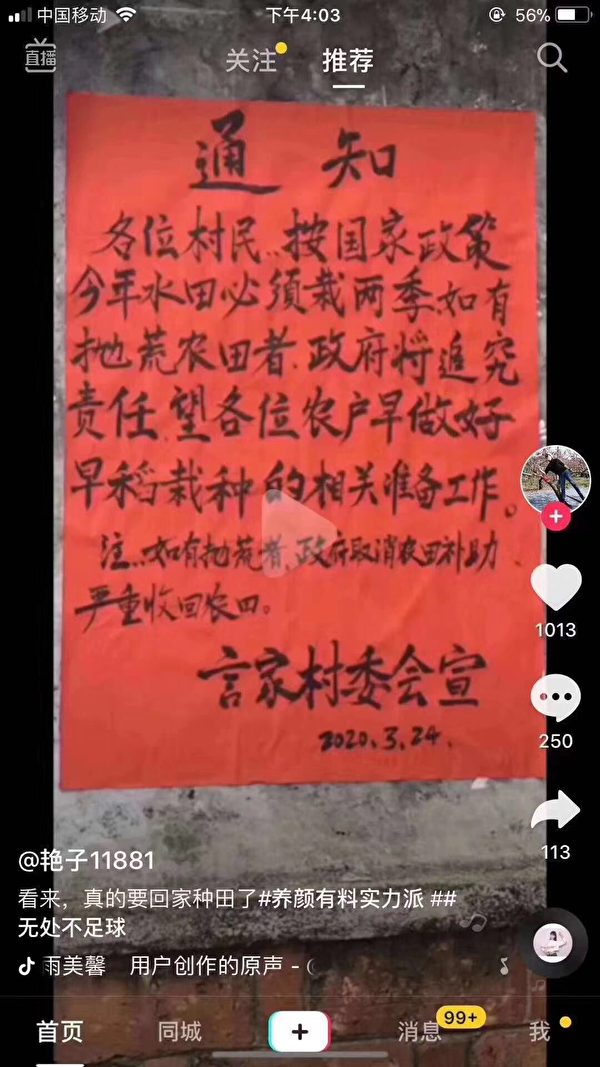 中国移动
下午4:03
56%
直播
关注
推荐
通知
各位村民..按国家政策
今年水田必须栽两季.如有
抛荒农田者.政府将追究
责任.望各位农户早做好
早稻栽种的相关准备工作。
注...如有抛荒者.政府取消农田补助
严重收回农田。
言家村委会宣
2020.3.24.
1013
250
113
@艳子11881
看来，真的要回家种田了#养颜有料实力派 ##
无处不足球
雨美馨 用户创作的原声 - (
首页
同城
消息
99+
我